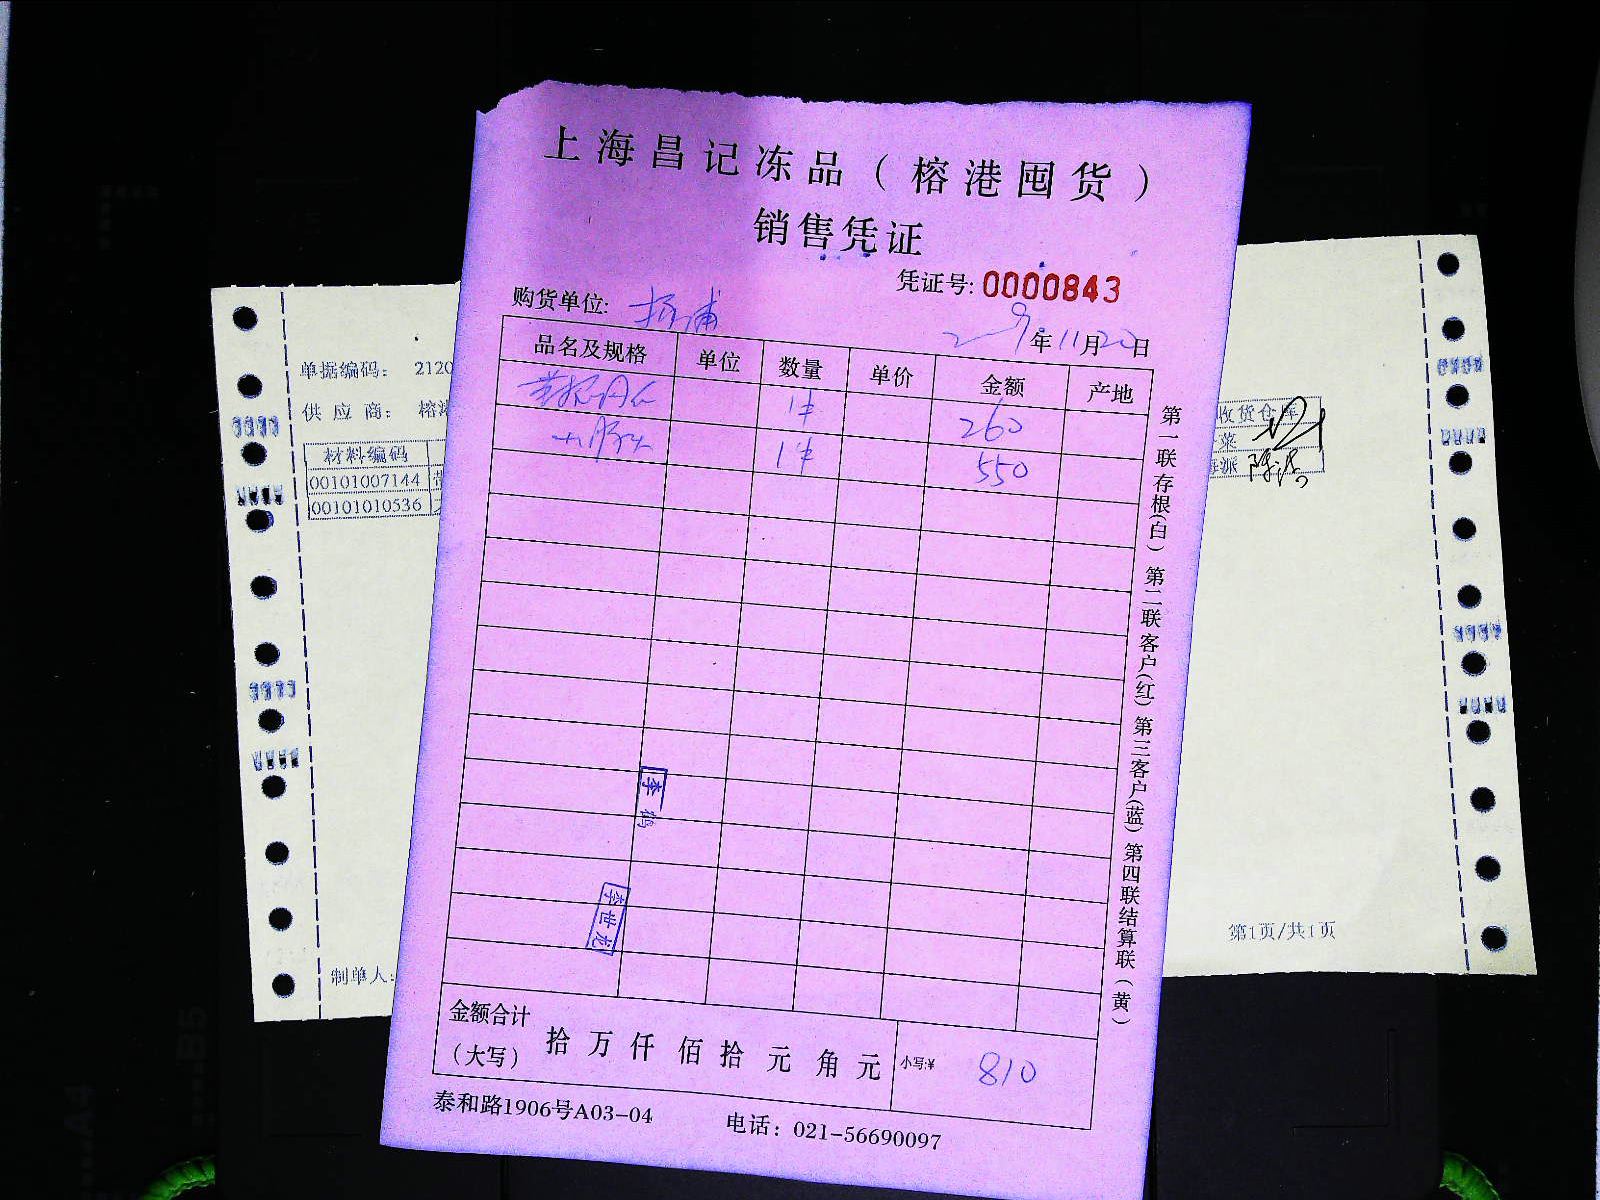 上海昌记冻品（榕港囤货）
销售凭证
凭证号: 0000843
购货单位: 杨浦
年11月20日
品名及规格 单位 数量 单价 金额 产地
1件 260
1件 550
金额合计
（大写） 拾 万 仟 佰 拾 元 角 元 小写:¥ 810
泰和路1906号A03-04 电话：021-56690097
第一联存根（白）第二联客户（红）第三客户（蓝）第四联结算联（黄）
李鹤
李世龙
单据编码： 2120
供 应 商： 榕港
材料编码
00101007144
00101010536
制单人:
收货仓库
菜
海派
第1页/共1页